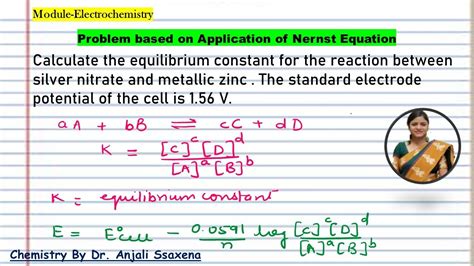 Module-Electrochemistry
Problem based on Application of Nernst Equation
Calculate the equilibrium constant for the reaction between
silver nitrate and metallic zinc . The standard electrode
potential of the cell is 1.56 V.
aA + bB ⇌ cC + dD
K = [C]^c [D]^d / [A]^a [B]^b
K = equilibrium constant
E = E°cell − 0.0591/n log [C]^c [D]^d / [A]^a [B]^b
Chemistry By Dr. Anjali Ssaxena